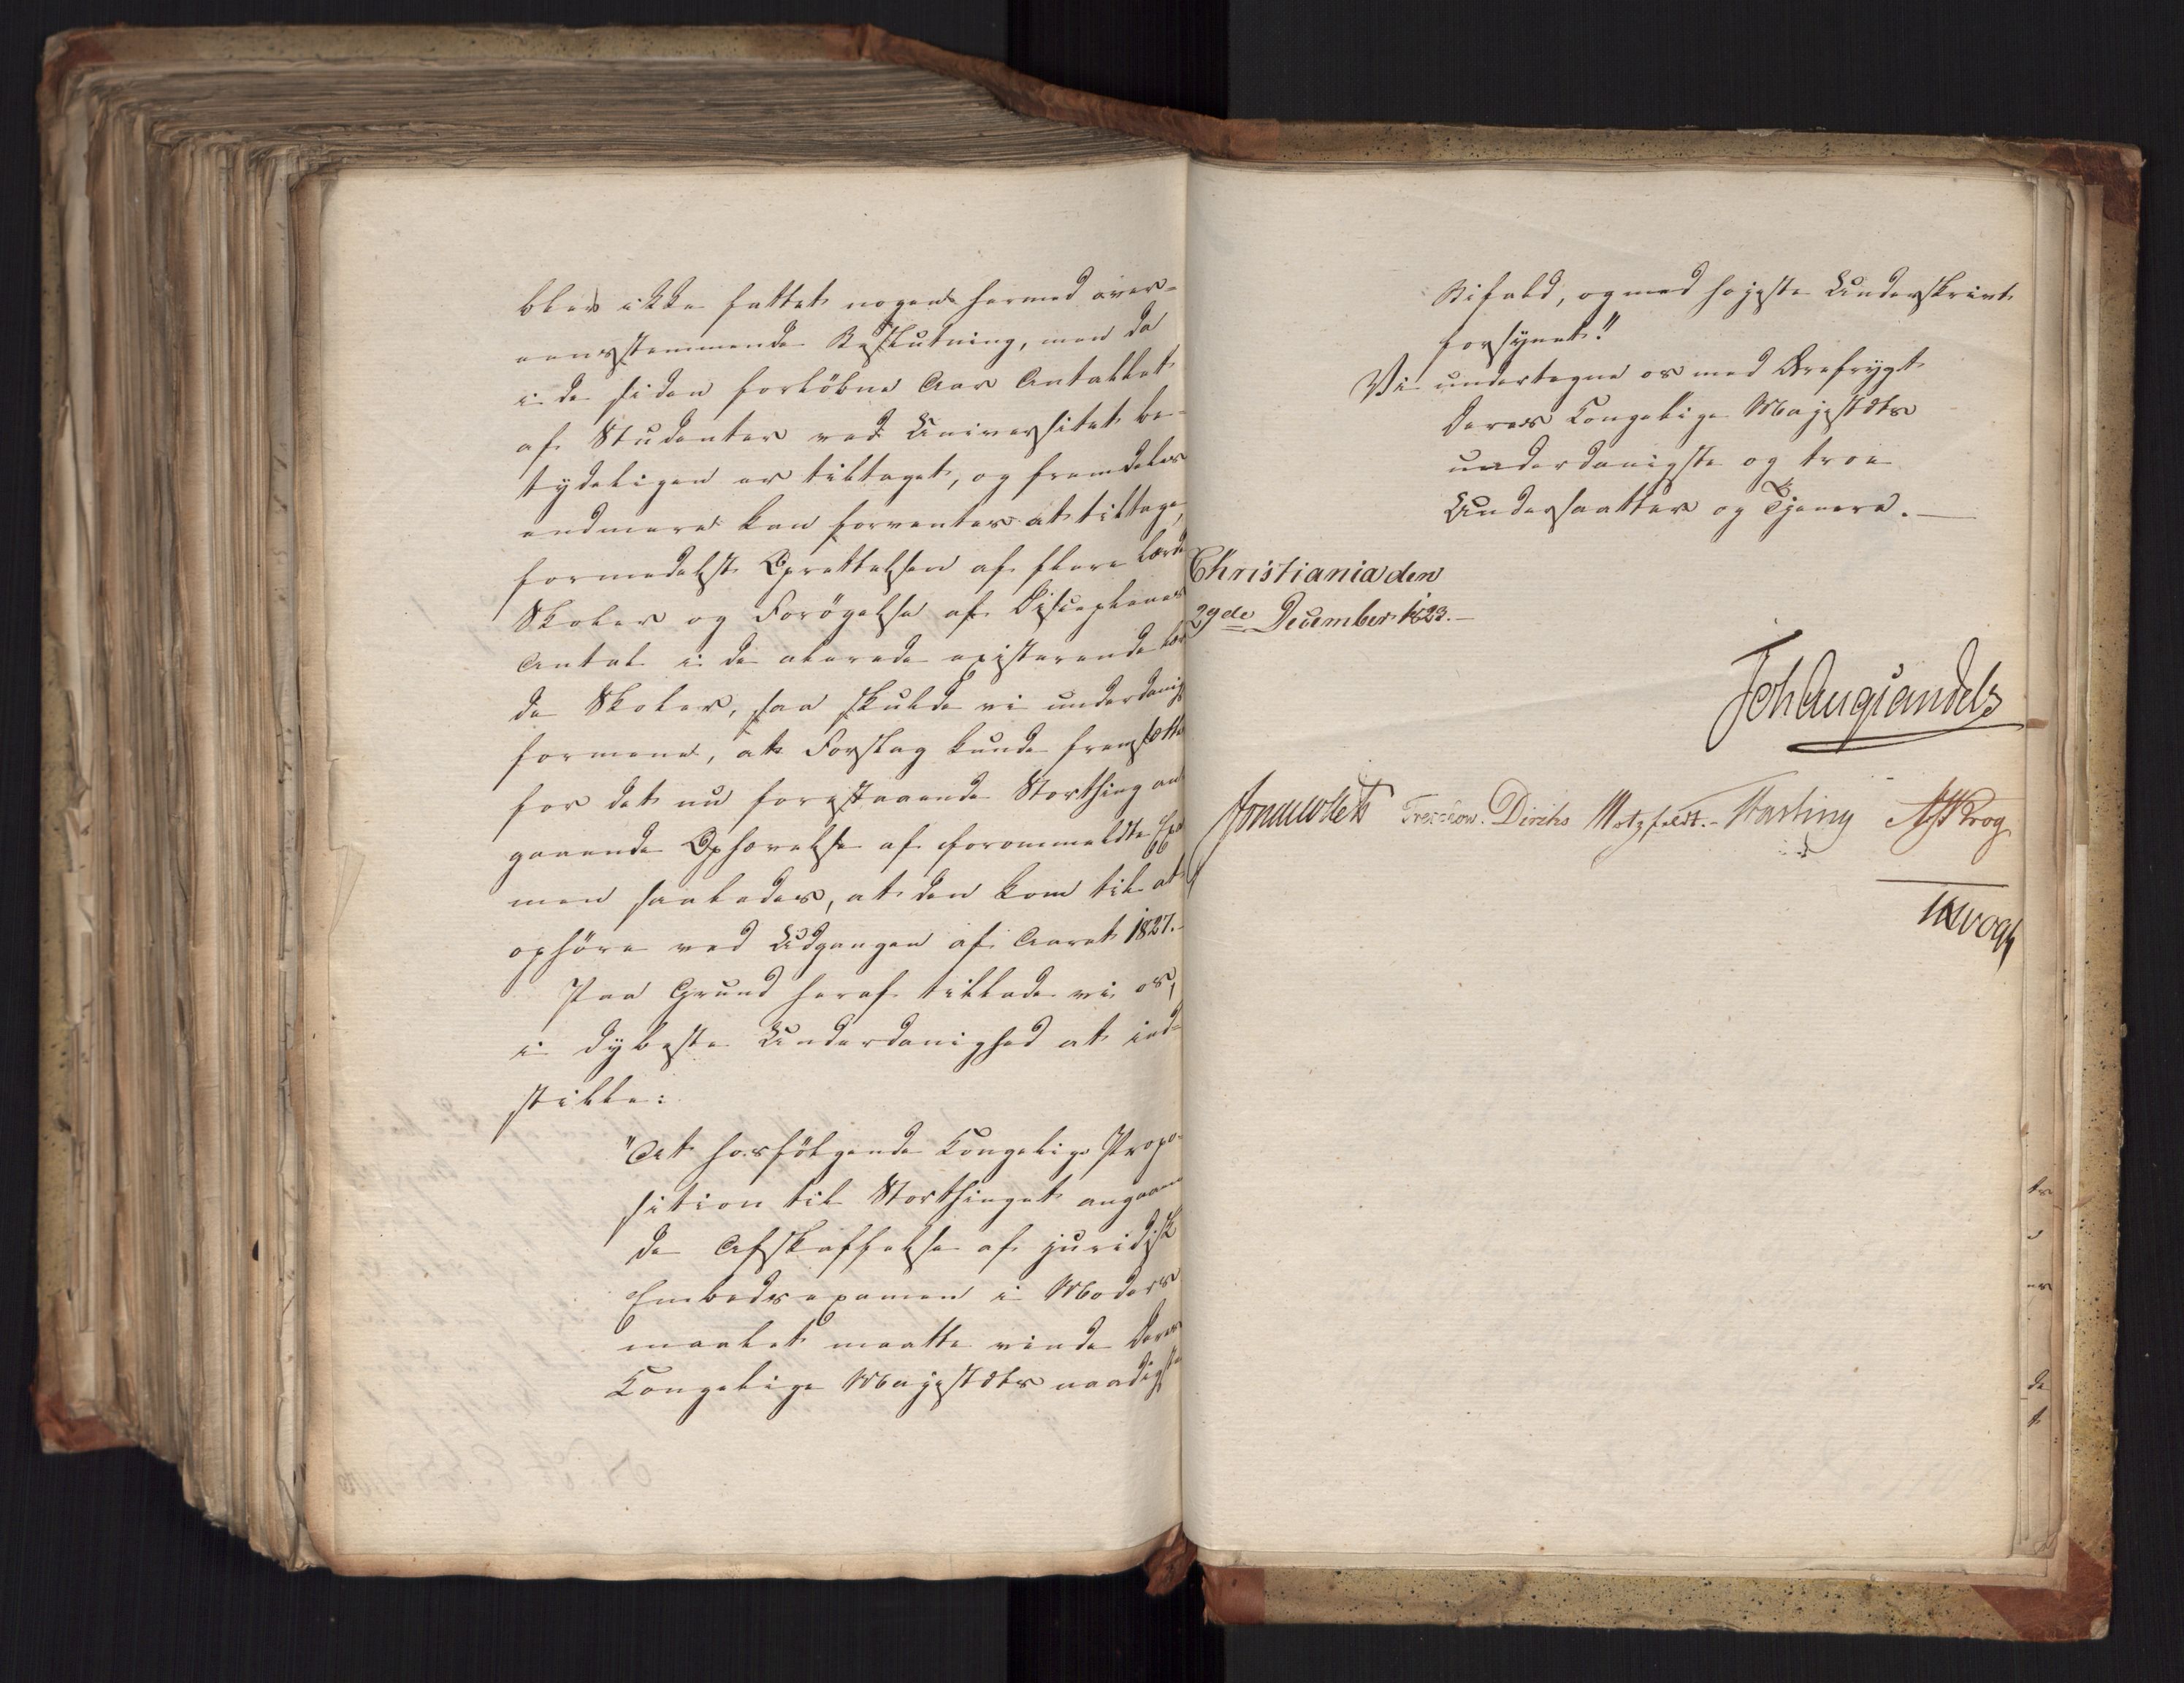 blev ikke fattet nogen hermed over-
eensstemmende Beslutning, men da
i de siden forløbne Aar Antallet
af Studenter ved Universitet be-
tydeligen er tiltaget, og fremdeles
endmere kan forventes at tiltage,
formedelst Oprettelsen af flere lærde
Skoler og Forøgelse af Disciplenes
Antal i de allerede existerende lær
de Skoler, saa skulde vi underdanigst
formene, at Forslag kunde fremsættes
for det nu forestaaende Storthing an
gaaende Ophævelse af forommeldte Exa
men saaledes, at den kom til at
ophöre ved Udgangen af Aaret 1827.-
Paa Grund heraf tillade vi os,
i dybeste Underdanighed at ind-
stille:
"At hosfölgende Kongelige Propo-
sition til Storthinget angaaen
de Afskaffelse af juridisk
Embedsexamen i Moders
maalet maatte vinde Deres
Kongelige Majestæts naadigste
Bifald, og med höjeste Underskrivt
forsynet."
Vi undertegne os med Ærefrygt
Deres Kongelige Majestæts
underdanigste og troe
Undersaatter og Tjenere.
Christiania den
29de December 1823.-
Joh Aug Sandels
Jonas Collett Treschow. Diriks Motzfeldt.- Fasting Krog
Vogt